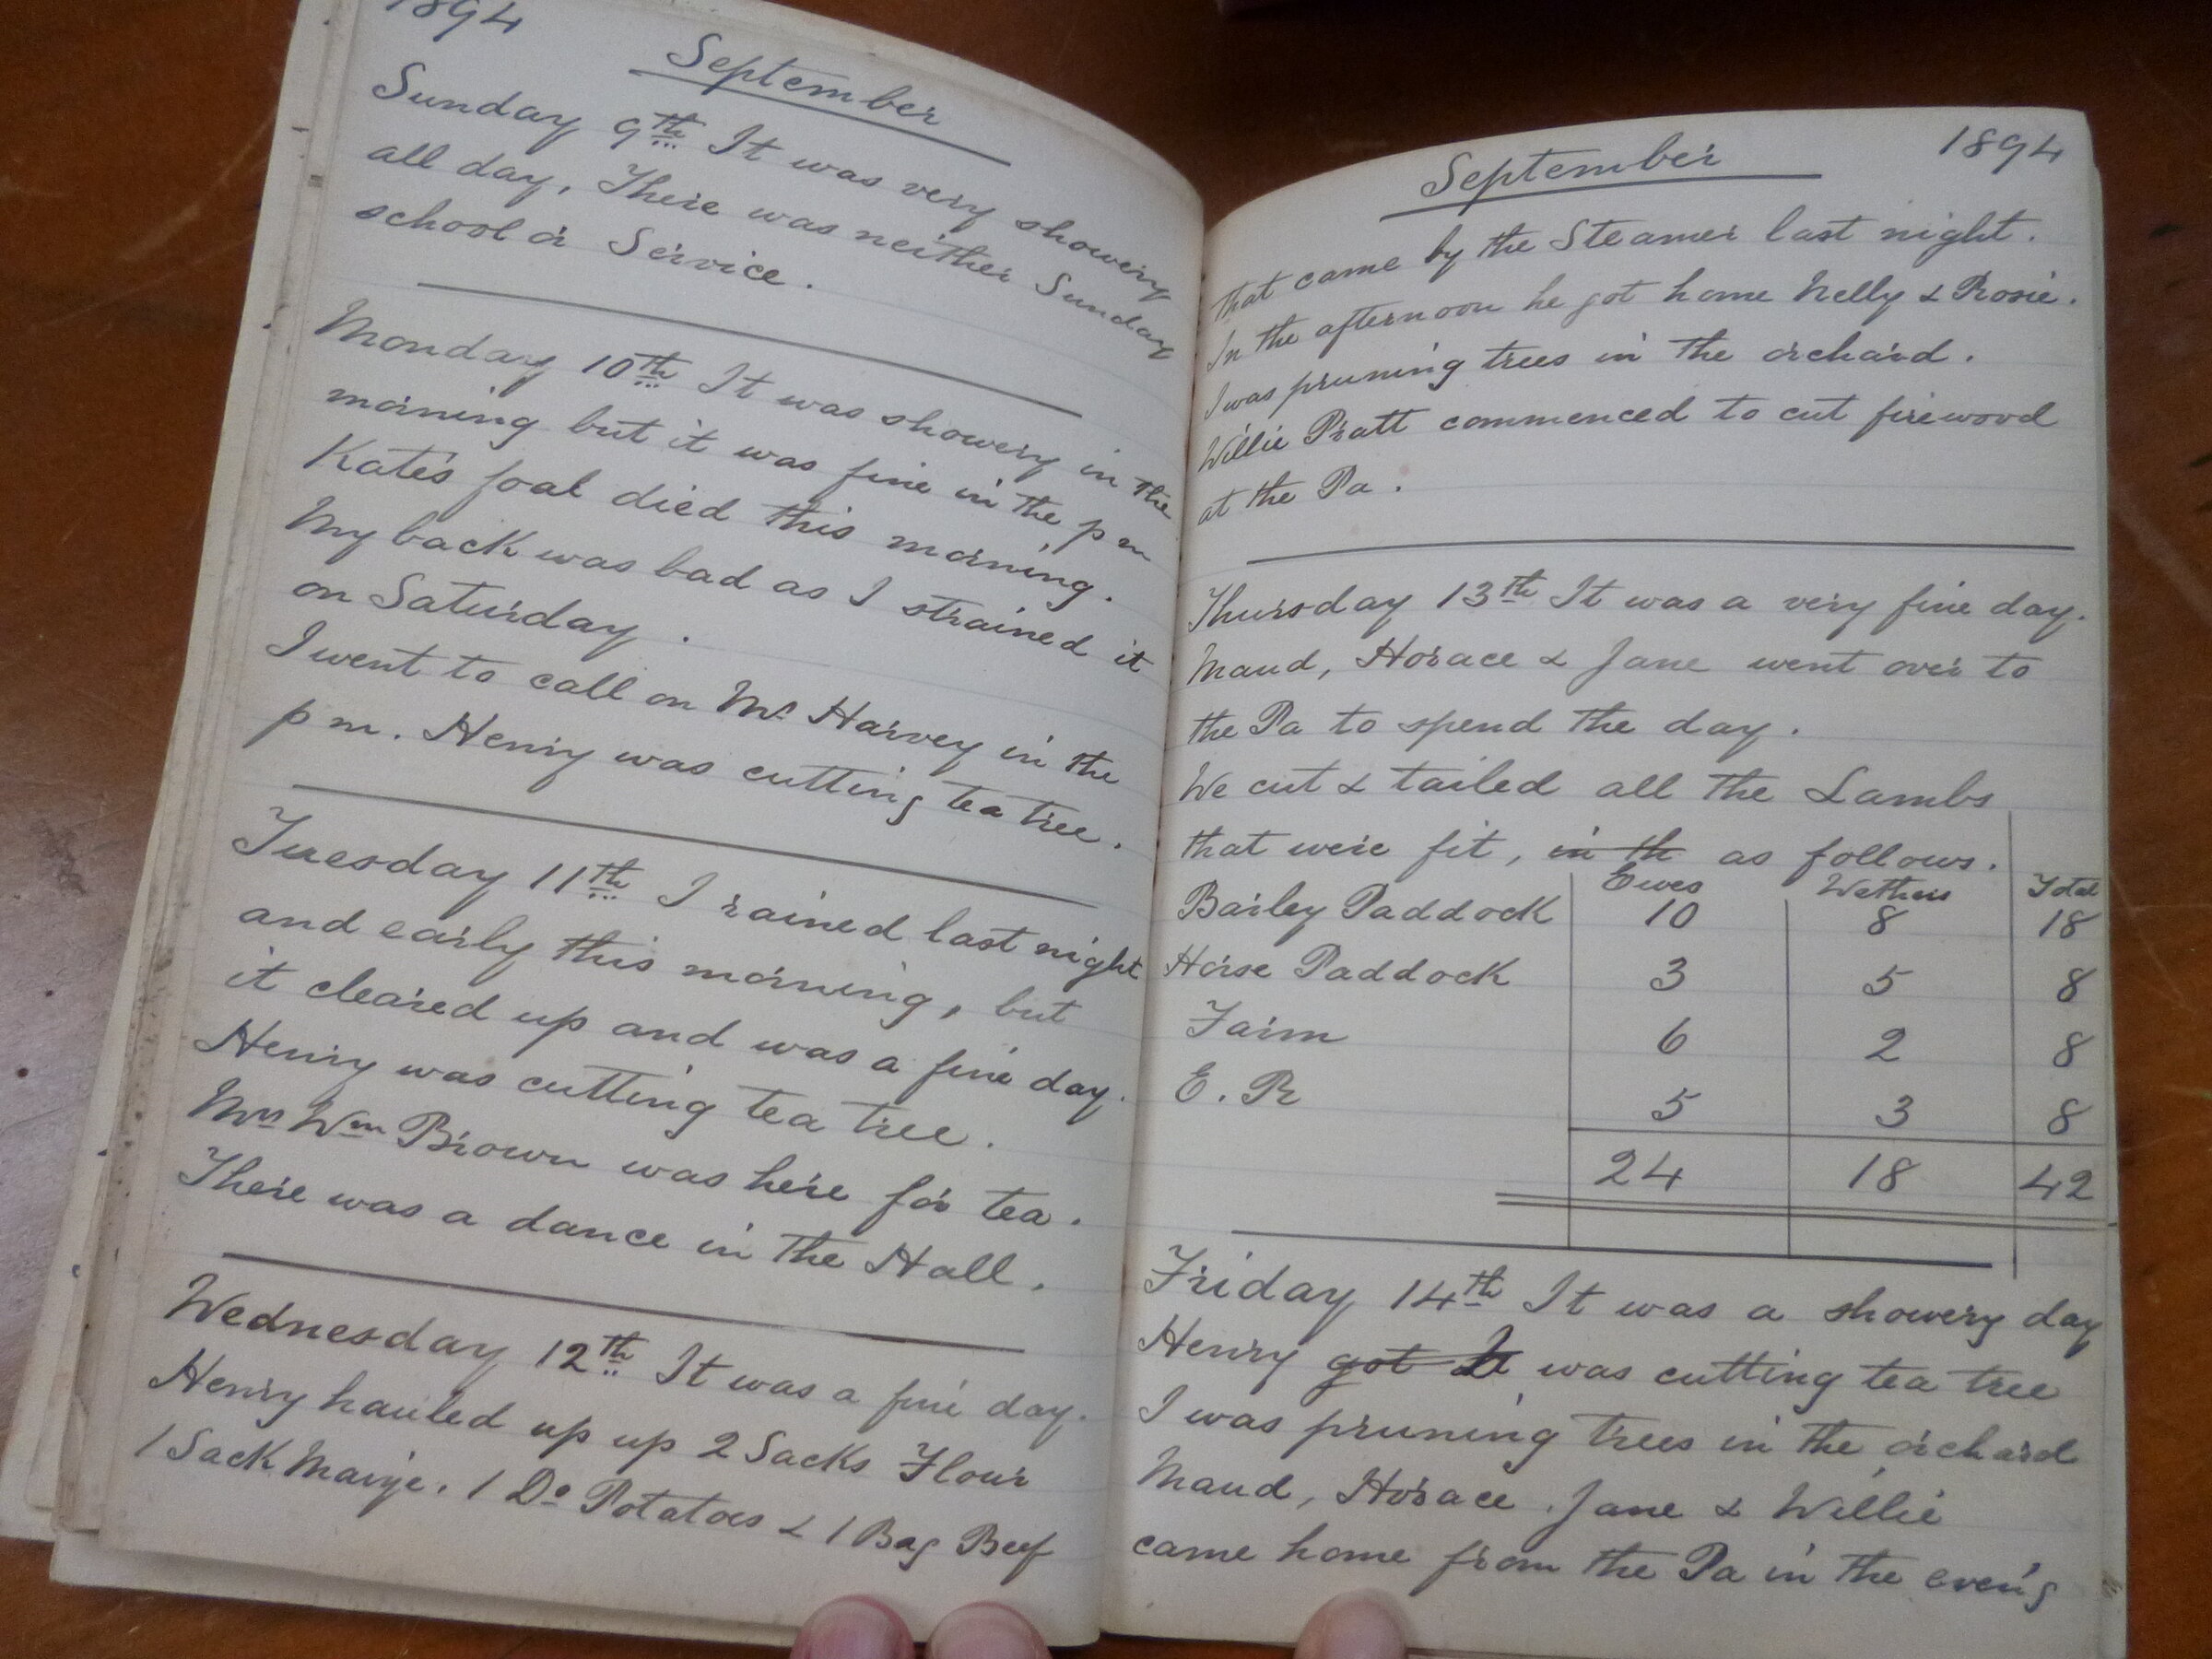 1894
September
Sunday 9th It was very showery
all day, There was neither Sunday
school or Service.
Monday 10th It was showery in the
morning but it was fine in the p m
Kate's foal died this morning.
My back was bad as I strained it
on Saturday.
I went to call on Mr Harvey in the
p m. Henry was cutting tea tree.
Tuesday 11th I rained last night
and early this morning, but
it cleared up and was a fine day.
Henry was cutting tea tree.
Mrs Wm Brown was here for tea.
There was a dance in the Hall.
Wednesday 12th It was a fine day.
Henry hauled up up 2 Sacks Flour
1 Sack Maize, 1 Do Potatoes & 1 Bag Beef
September 1894
that came by the Steamer last night.
In the afternoon he got home Nelly & Rosie.
I was pruning trees in the orchard.
Willie Pratt commenced to cut firewood
at the Pa.
Thursday 13th It was a very fine day.
Maud, Horace & Jane went over to
the Pa to spend the day.
We cut & tailed all the Lambs
that were fit, in th as follows.
Ewes Wethers Total
Barley Paddock 10 8 18
Horse Paddock 3 5 8
Farm 6 2 8
E. R 5 3 8
24 18 42
Friday 14th It was a showery day
Henry got was cutting tea tree
I was pruning trees in the orchard
Maud, Horace, Jane & Willie
came home from the Pa in the even'g